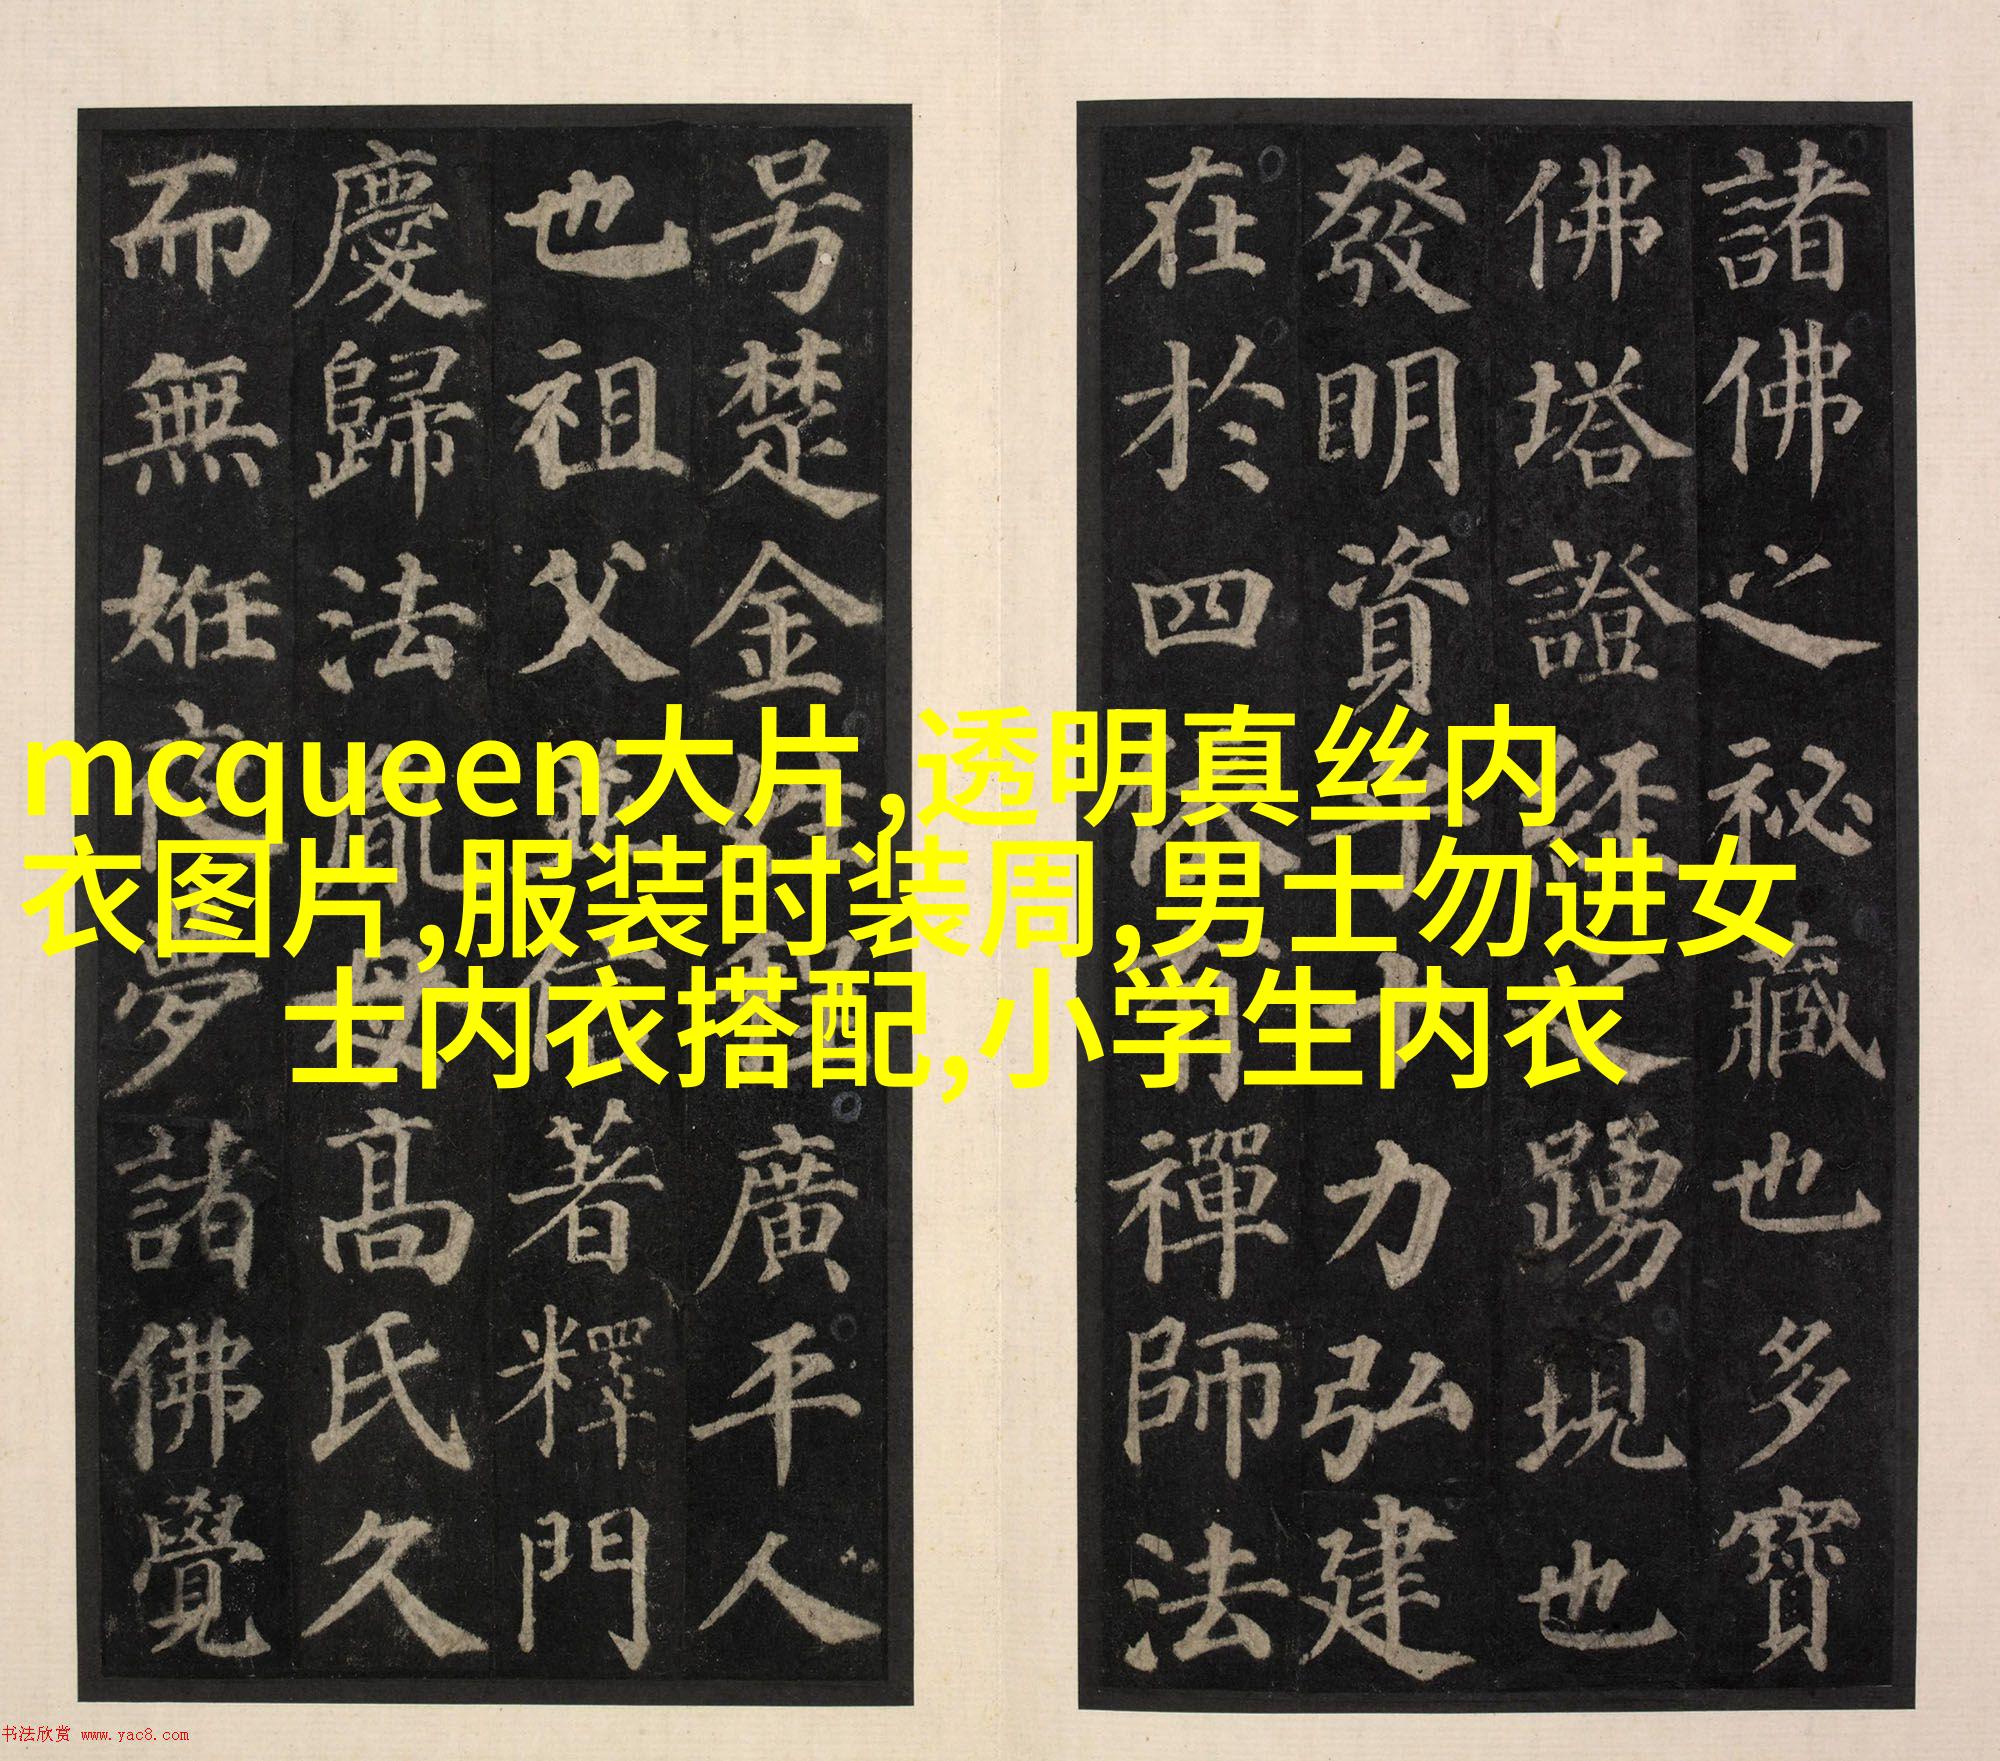 諸佛之祕藏也多寶
佛塔證經之踴現也
發明資乎十力弘建
在於四依有禪師法
号楚金姓程廣平人
也祖父並信著釋門
慶歸法胤母高氏久
而無姙夜夢諸佛覺
mcqueen大片,透明真丝内
衣图片,服装时装周,男士勿进女
士内衣搭配,小学生内衣
书法欣赏 www.yac8.com